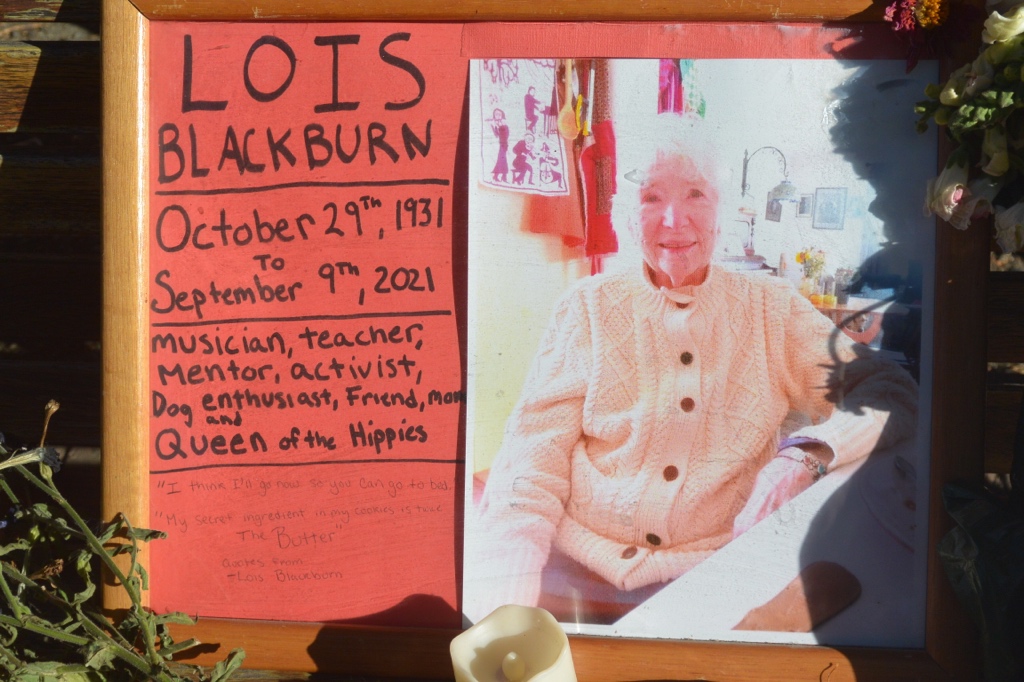 LOIS
BLACKBURN
October 29TH, 1931
TO
September 9TH, 2021
musician, teacher,
mentor, activist,
Dog enthusiast, Friend, mom
and
Queen of the Hippies
"I think I'll go now so you can go to bed."
"My secret ingredient in my cookies is twice
The Butter"
Quotes from
-Lois Blackburn